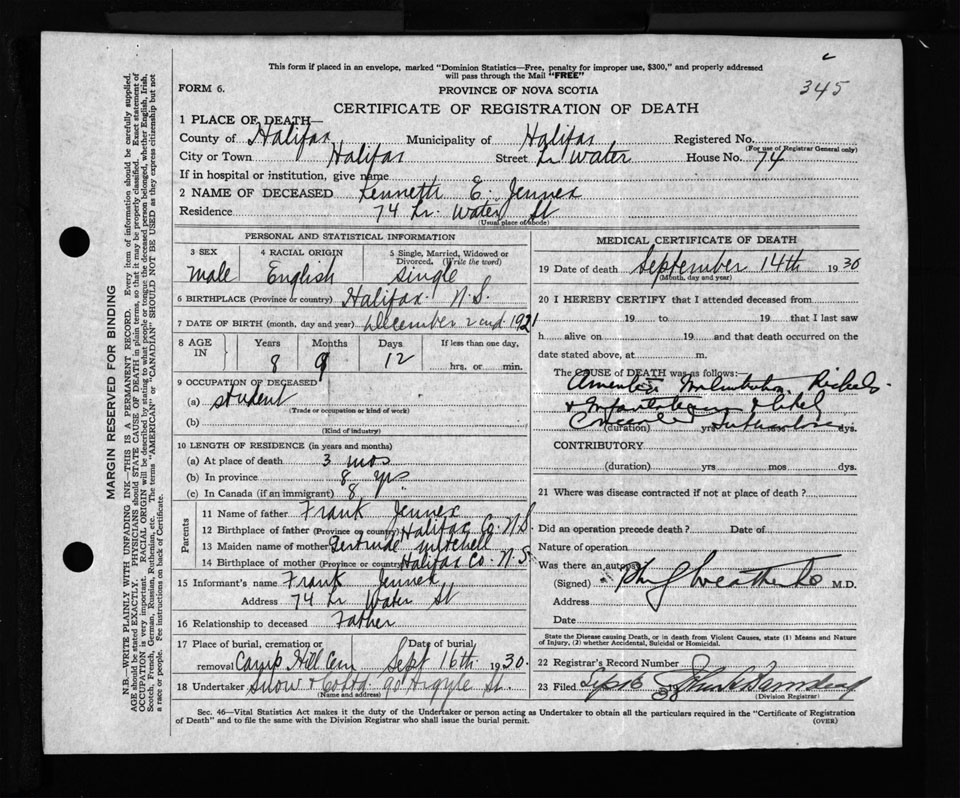 345
This form if placed in an envelope, marked "Dominion Statistics—Free, penalty for improper use, $300," and properly addressed
will pass through the Mail "FREE"
FORM 6.
PROVINCE OF NOVA SCOTIA
CERTIFICATE OF REGISTRATION OF DEATH
1 PLACE OF DEATH—
County of Halifax Municipality of Halifax Registered No.
(For use of Registrar General only)
City or Town Halifax Street Lr Water House No. 74
If in hospital or institution, give name
2 NAME OF DECEASED Kenneth E. Jennex
Residence 74 Lr. Water St
(Usual place of abode)
PERSONAL AND STATISTICAL INFORMATION
3 SEX 4 RACIAL ORIGIN 5 Single, Married, Widowed or
Divorced. (Write the word)
Male English Single
6 BIRTHPLACE (Province or country) Halifax. N.S.
7 DATE OF BIRTH (month, day and year) December 2nd 1921
8 AGE IN Years Months Days If less than one day,
8 9 12 hrs. or min.
9 OCCUPATION OF DECEASED
(a) Student
(Trade or occupation or kind of work)
(b)
(Kind of industry)
10 LENGTH OF RESIDENCE (in years and months)
(a) At place of death 3 mos
(b) In province 8 yrs
(c) In Canada (if an immigrant) 8
Parents
11 Name of father Frank Jennex
12 Birthplace of father (Province or country) Halifax Co. N.S.
13 Maiden name of mother Gertrude Mitchell
14 Birthplace of mother (Province or country) Halifax Co. N.S.
15 Informant's name Frank Jennex
Address 74 Lr Water St
16 Relationship to deceased Father
17 Place of burial, cremation or Date of burial,
removal Camp Hill Cem Sept 16th 1930.
18 Undertaker Snow & 90 Argyle St.
(Name and address)
MEDICAL CERTIFICATE OF DEATH
19 Date of death September 14th 1930
(Month, day and year)
20 I HEREBY CERTIFY that I attended deceased from
19 to 19 that I last saw
h alive on 19 and that death occurred on the
date stated above, at m.
The CAUSE of DEATH was as follows:
(duration) yrs dys.
CONTRIBUTORY
(duration) yrs mos dys.
21 Where was disease contracted if not at place of death?
Did an operation precede death? Date of
Nature of operation
Was there an autopsy
(Signed) M.D.
Address
Date
State the Disease causing Death, or in death from Violent Causes, state (1) Means and Nature
of Injury, (2) whether Accidental, Suicidal or Homicidal.
22 Registrar's Record Number
23 Filed 1930
(Division Registrar)
Sec. 46—Vital Statistics Act makes it the duty of the Undertaker or person acting as Undertaker to obtain all the particulars required in the "Certificate of Registration
of Death" and to file the same with the Division Registrar who shall issue the burial permit.
(OVER)
MARGIN RESERVED FOR BINDING
N.B.—WRITE PLAINLY WITH UNFADING INK—THIS IS A PERMANENT RECORD. Every item of information should be carefully supplied.
AGE should be stated EXACTLY. PHYSICIANS should STATE CAUSE OF DEATH in plain terms, so that it may be properly classified. Exact statement of
OCCUPATION is very important. RACIAL ORIGIN will be described by stating to what people or tongue the deceased person belonged, whether English, Irish,
Scotch, French, German, Russian, Ruthenian, etc. The terms "AMERICAN" or "CANADIAN" SHOULD NOT BE USED as they express citizenship but not
a race or people. Fee instructions on back of Certificate.